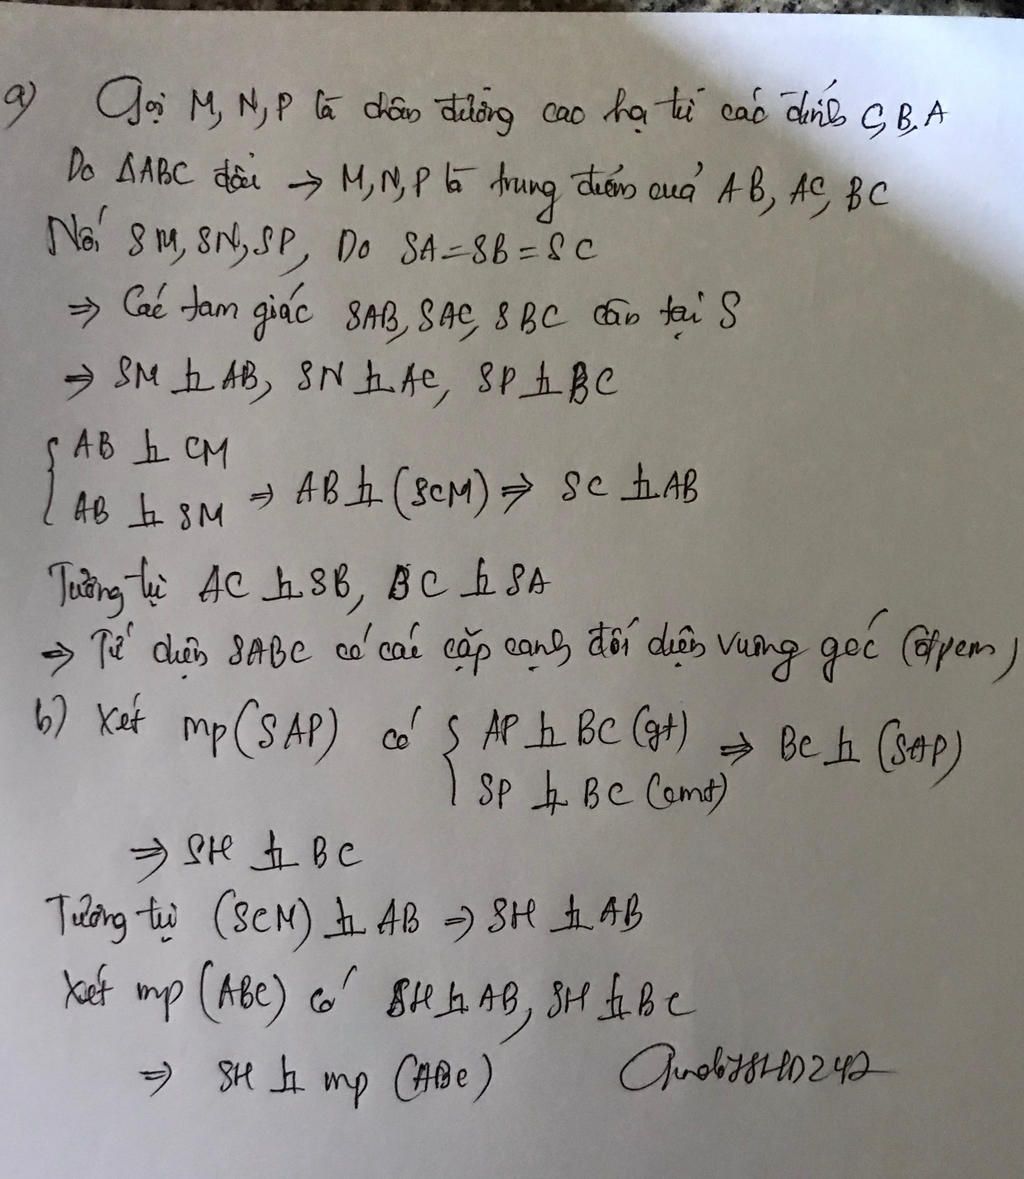 a) Gọi M, N, P là chân đường cao hạ từ các đỉnh C, B, A
Do ΔABC đều → M, N, P là trung điểm của AB, AC, BC
Nối SM, SN, SP, Do SA = SB = SC
⇒ Các tam giác SAB, SAC, SBC cân tại S
⇒ SM ⊥ AB, SN ⊥ AC, SP ⊥ BC
{ AB ⊥ CM
AB ⊥ SM ⇒ AB ⊥ (SCM) ⇒ SC ⊥ AB
Tương tự AC ⊥ SB, BC ⊥ SA
⇒ Tứ diện SABC có các cặp cạnh đối diện vuông góc (đpcm)
b) Xét mp(SAP) có { AP ⊥ BC (gt) ⇒ BC ⊥ (SAP)
SP ⊥ BC (cmt)
⇒ SH ⊥ BC
Tương tự (SCM) ⊥ AB ⇒ SH ⊥ AB
Xét mp (ABC) có SH ⊥ AB, SH ⊥ BC
⇒ SH ⊥ mp (ABC)